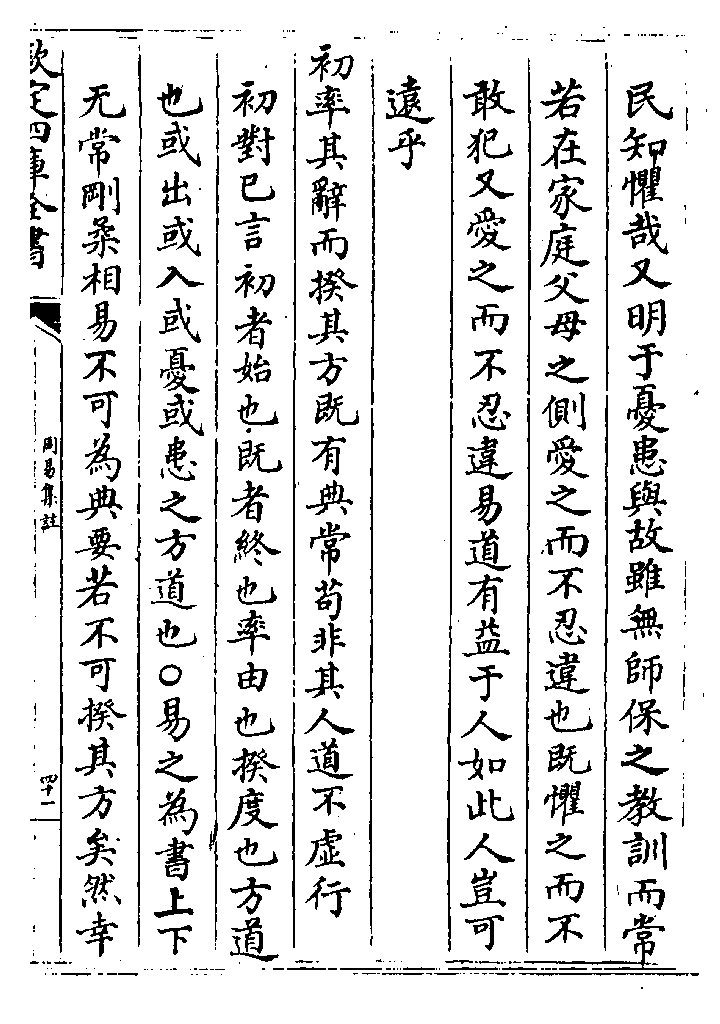 民知懼哉又明于憂患與故雖無師保之教訓而常
若在家庭父母之側愛之而不忍違也既懼之而不
敢犯又愛之而不忍違易道有益于人如此人豈可
遠乎
初率其辭而揆其方既有典常苟非其人道不虛行
初對已言初者始也既者終也率由也揆度也方道
也或出或入或憂或患之方道也○易之為書上下
无常剛柔相易不可為典要若不可揆其方矣然幸
欽定四庫全書
周易集註
四十一